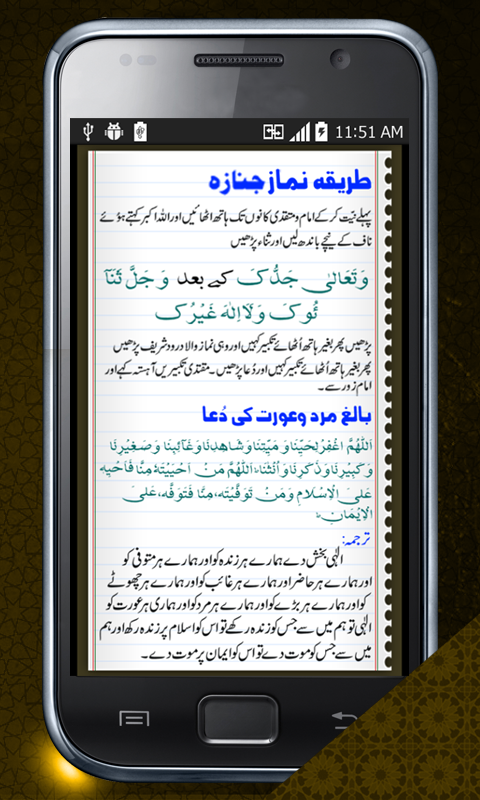 11:51 AM
طریقہ نماز جنازہ
پہلے نیّت کر کے امام و مقتدی کانوں تک ہاتھ اٹھائیں اور اللہ اکبر کہتے ہوئے
ناف کے نیچے باندھ لیں اور ثناء پڑھیں
وَتَعَالٰی جَدُّکَ کے بعد وَ جَلَّ ثَنَآ
ئُوکَ وَلَآ اِلٰہَ غَیْرُکَ
پڑھیں پھر بغیر ہاتھ اُٹھائے تکبیر کہیں اور وہی نماز والا درود شریف پڑھیں
پھر بغیر ہاتھ اُٹھائے تکبیر کہیں اور دُعا پڑھیں۔ مقتدی تکبیریں آہستہ کہے اور
امام زور سے۔
بالغ مرد و عورت کی دُعا
اَللّٰھُمَّ اغْفِرْ لِحَیِّنَا وَ مَیِّتِنَا وَ شَاھِدِنَا وَ غَآئِبِنَا وَ صَغِیْرِنَا
وَ کَبِیْرِنَا وَ ذَکَرِنَا وَ اُنْثٰنَا۔ اَللّٰھُمَّ مَنْ اَحْیَیْتَہٗ مِنَّا فَاَحْیِہٖ
عَلَی الْاِسْلَامِ وَ مَنْ تَوَفَّیْتَہٗ مِنَّا فَتَوَفَّہٗ عَلَی
الْاِیْمَانِ۔
ترجمہ:
الٰہی بخش دے ہمارے ہر زندہ کو اور ہمارے ہر متوفی کو
اور ہمارے ہر حاضر اور ہمارے ہر غائب کو اور ہمارے ہر چھوٹے
کو اور ہمارے ہر بڑے کو اور ہمارے ہر مرد کو اور ہماری ہر عورت کو
الٰہی تو ہم میں سے جس کو زندہ رکھے تو اس کو اسلام پر زندہ رکھ اور ہم
میں سے جس کو موت دے تو اس کو ایمان پر موت دے۔